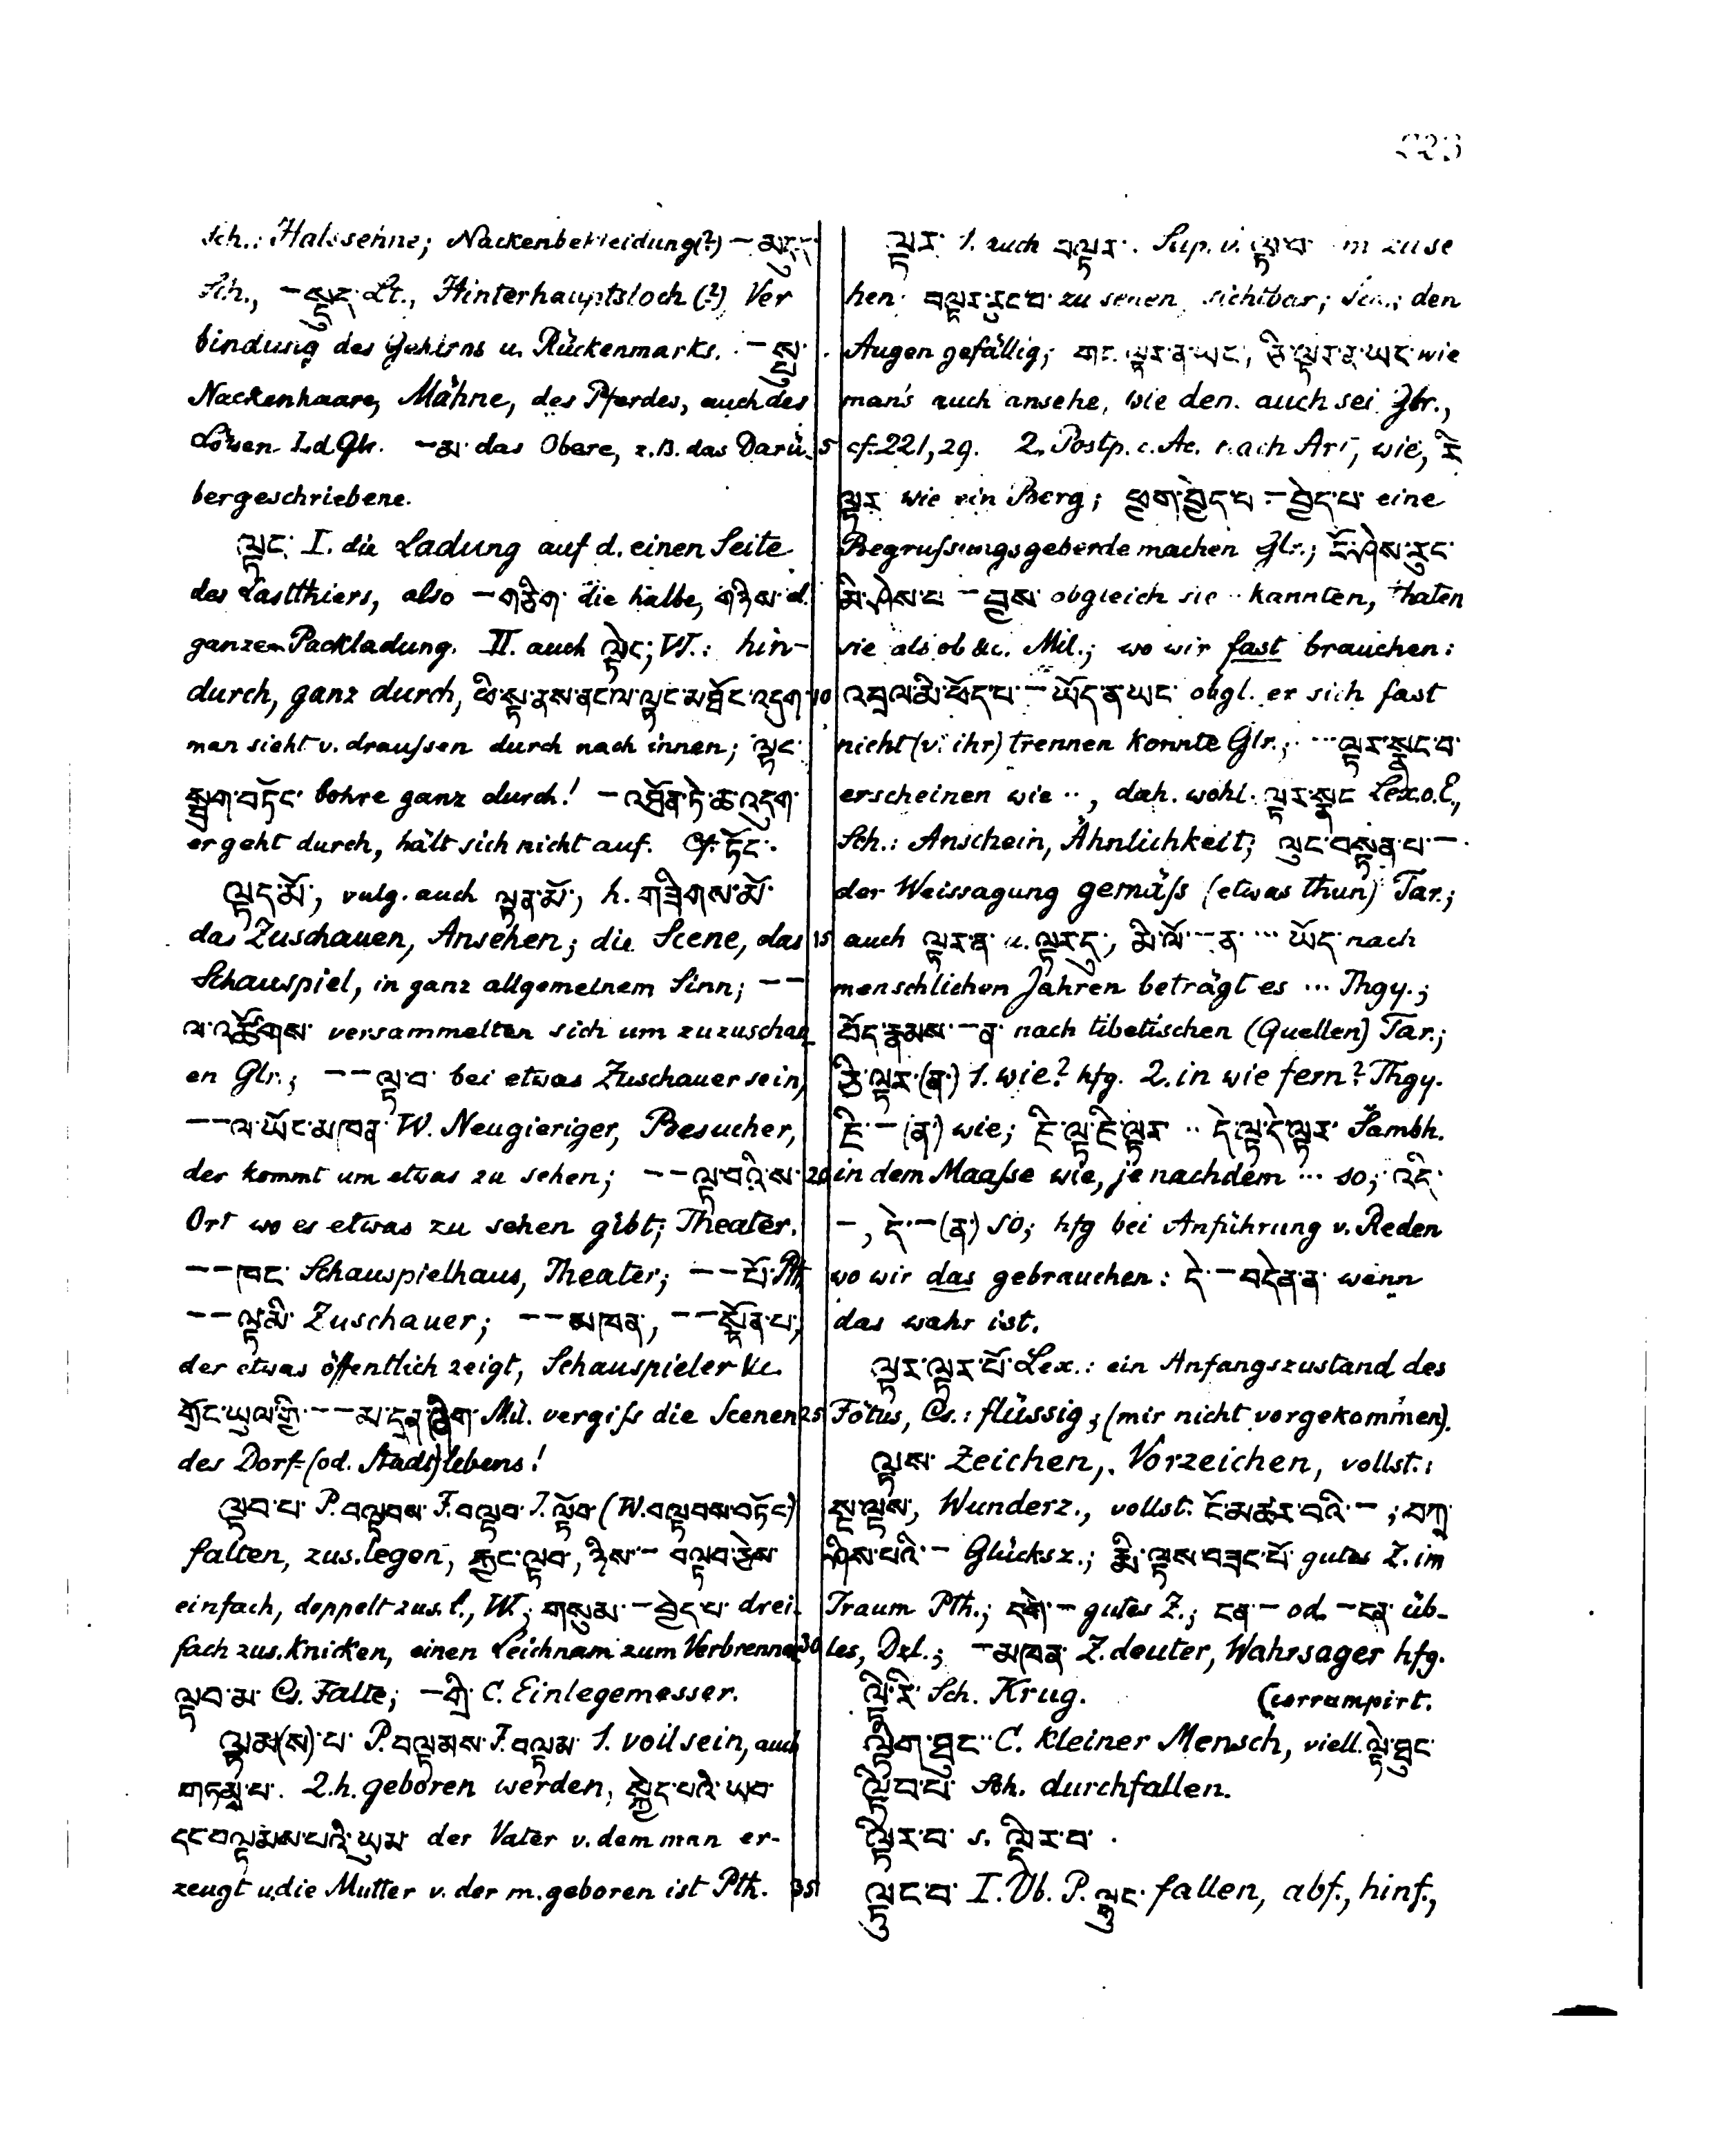 223
Sch.: Halssehne; Nackenbekleidung(?) –
Sch., – Lt., Hinterhauptsloch (?) Ver
bindung des Gehirns u. Rückenmarks. –
Nackenhaare, Mähne, des Pferdes, auch des
Löwen L.d.Glr. –མ་ das Obere, z.B. das Darü-
bergeschriebene.
ལྟང་ I. die Ladung auf d. einen Seite
des Lastthiers, also –གཅིག་ die halbe, གཉིས་ d.
ganzen Packladung. II. auch ལྟེང; W.: hin-
durch, ganz durch, ཕི་སྟ་ནས་ནང་ལ་ལྟང་མཐོང་འདུག་
man sieht v. draußen durch nach innen; ལྟང་
སྦུག་བཏོང་ bohre ganz durch! –འཐོན་ཏེ་ཆ་འདུག་
er geht durch, hält sich nicht auf. Cf. ཏོང་.
ལྟད་མོ་, vulg. auch ལྟན་མོ་, h. གཟིགས་མོ་
das Zuschauen, Ansehen; die Scene, das
Schauspiel, in ganz allgemeinem Sinn; ––
ལ་འཚོགས་ versammelten sich um zuzuschau
en Glr.; ––ལྟ་བ་ bei etwas Zuschauer sein,
––ལ་ཡོང་མཁན་ W. Neugieriger, Besucher,
der kommt um etwas zu sehen; ––ལྟ་བའི་ས་
Ort wo es etwas zu sehen gibt; Theater.
––ཁང་ Schauspielhaus, Theater; ––པོ་ Pth
––ལྟ་མི་ Zuschauer; ––མཁན, ––སྟོན་པ་,
der etwas öffentlich zeigt, Schauspieler &c.
གྲོང་ཡུལ་གྱི་––མ་དྲན་ཞིག་ Mil. vergiß die Scenen
des Dorf- (od. Stadt) lebens!
ལྟབ་པ་ P. བལྟབས་ F. བལྟབ་ I. ལྟོབ་ (W. བལྟབས་བཏོང་)
falten, zus. legen, རྐྱང་ལྟབ་, ཉིས་– བལྟབ་བྱེས་
einfach, doppelt zus. l., W.; གསུམ་–བྱེད་པ་ drei-
fach zus. knicken, einen Leichnam zum Verbrennen
ལྟབ་མ་ Cs. Falte; –གྲི་ C. Einlegemesser.
ལྟམ(ས)་པ་ P. བལྟམས་ F. བལྟམ་ 1. voll sein, auch
གཏམས་པ་. 2. h. geboren werden, སྐྱེད་པའི་ཡབ་
དང་བལྟམས་པའི་ཡུམ་ der Vater v. dem man er-
zeugt u. die Mutter v. der m. geboren ist Pth.
5
10
15
20
25
30
35
ལྟར་ 1. auch བལྟར་. Sup. v. ལྟ་བ་ m zu se
hen བལྟར་རུང་བ་ zu sehen, sichtbar; Sch.; den
Augen gefällig; གང་ལྟར་ན་ཡང་, ཅི་ལྟར་ན་ཡང་ wie
man's auch ansehe, wie dem auch sei Glr.,
cf. 221, 29. 2. Postp. c. Ac. nach Art, wie, རི་
ལྟར་ wie ein Berg; ཕྱག་བྱེད་པ་–བྱེད་པ་ eine
Begrußungsgeberde machen Glr.; ངོ་ཤེས་རུང་
མི་ཤེས་པ་–བྱས་ obgleich sie ·· kannten, thaten
sie als ob &c. Mil.; wo wir fast brauchen:
འབྲལ་མི་ཕོད་པ་–ཡོད་ན་ཡང་ obgl. er sich fast
nicht (v. ihr) trennen konnte Glr.; ··· ལྟར་སྣང་བ་
erscheinen wie ··, dah. wohl ལྟར་སྣང་ Lex. o. E.,
Sch.: Anschein, Ähnlichkeit; ལུང་བསྟན་པ་–
der Weissagung gemäß (etwas thun) Tar.;
auch ལྟར་ན་ u. ལྟར་དུ་, མི་ལོ་–ན་ ··· ཡོད་ nach
menschlichen Jahren beträgt es ··· Thgy.;
བོད་རྣམས་–ན་ nach tibetischen (Quellen) Tar.;
ཅི་ལྟར་(ན་) 1. wie? hfg. 2. in wie fern? Thgy.
ཇི་–(ན་) wie; ཇི་ལྟ་ཇི་ལྟར་ ·· དེ་ལྟ་དེ་ལྟར་ Sambh.
in dem Maaße wie, je nachdem ··· so; འདི་
–, དེ་–(ན་) so; hfg bei Anführung v. Reden
wo wir das gebrauchen: དེ་–བདེན་ན་ wenn
das wahr ist.
ལྟར་ལྟར་པོ་ Lex.: ein Anfangszustand des
Fötus, Cs.: flüssig; (mir nicht vorgekommen).
ལྟས་ Zeichen, Vorzeichen, vollst.:
སྔ་ལྟས་, Wunderz., vollst. ངོ་མཚར་བའི་–; བཀྲ་
ཤིས་པའི་– Glücksz.; རྨི་ལྟས་བཟང་པོ་ gutes Z. im
Traum Pth.; དགེ་– gutes Z.; ངན་– od. –ངན་ üb-
les, Dzl.; –མཁན་ Z. deuter, Wahrsager hfg.
ལྟི་རི་ Sch. Krug. (corrumpirt.
ལྟིག་ཐུང་ C. kleiner Mensch, viell. ལྟེ་ཐུང་
ལྟིབ་པ་ Sch. durchfallen.
ལྟིར་བ་ s. ལྡིར་བ་.
ལྟུང་བ་ I. Vb. P. ལྷུང་ fallen, abf., hinf.,